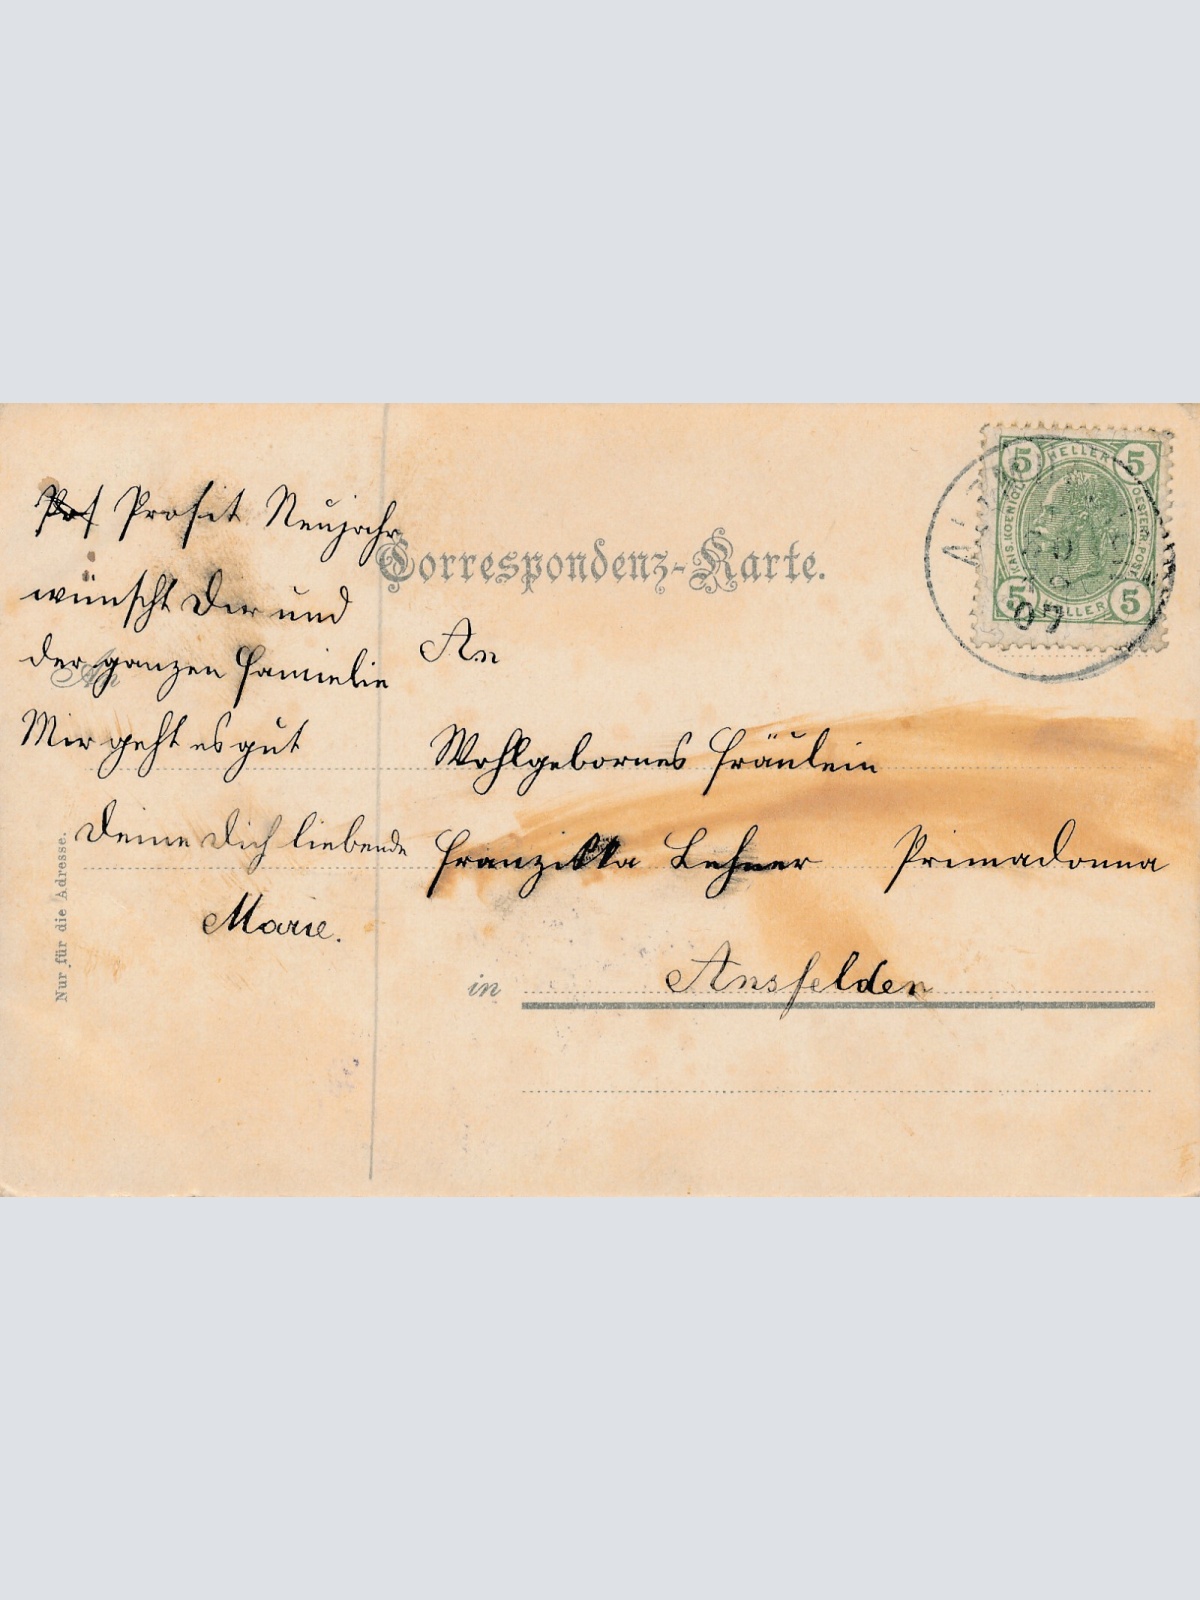 Prosit Neujahr
wünscht Dir und
der ganzen Famielie
Mir geht es gut
Deine Dich liebende
Marie.
Nur für die Adresse.
An
Correspondenz-Karte.
An
Wohlgebornes Fräulein
Franziska Lehner Primadonna
in Ansfelden
5 HELLER 5
KAIS. KOENIGL. OESTERR. POST
5 HELLER 5
07